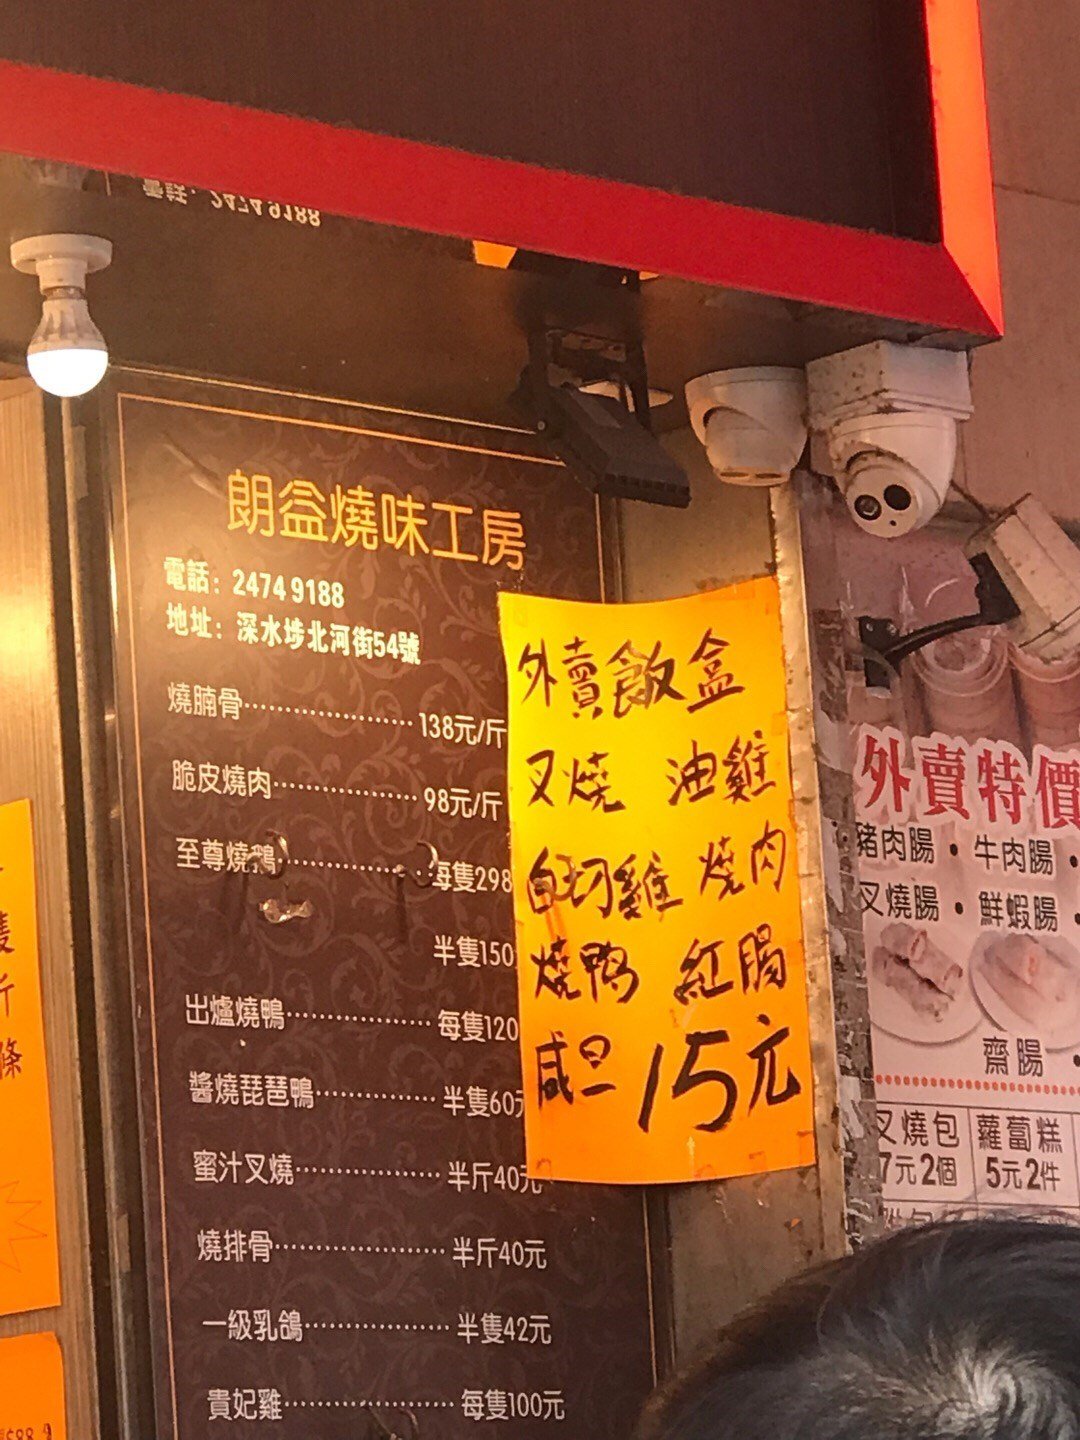 電話：2474 9188
朗益燒味工房
電話：2474 9188
地址：深水埗北河街54號
燒腩骨 138元/斤
脆皮燒肉 98元/斤
至尊燒鵝 每隻298
半隻150
出爐燒鴨 每隻120
醬燒琵琶鴨 半隻60元
蜜汁叉燒 半斤40元
燒排骨 半斤40元
一級乳鴿 半隻42元
貴妃雞 每隻100元
外賣飯盒
叉燒 油雞
白切雞 燒肉
燒鴨 紅腸
咸旦 15元
外賣特價
豬肉腸・牛肉腸・
叉燒腸・鮮蝦腸・
齋腸・
叉燒包 蘿蔔糕
7元2個 5元2件
隻
斤
條